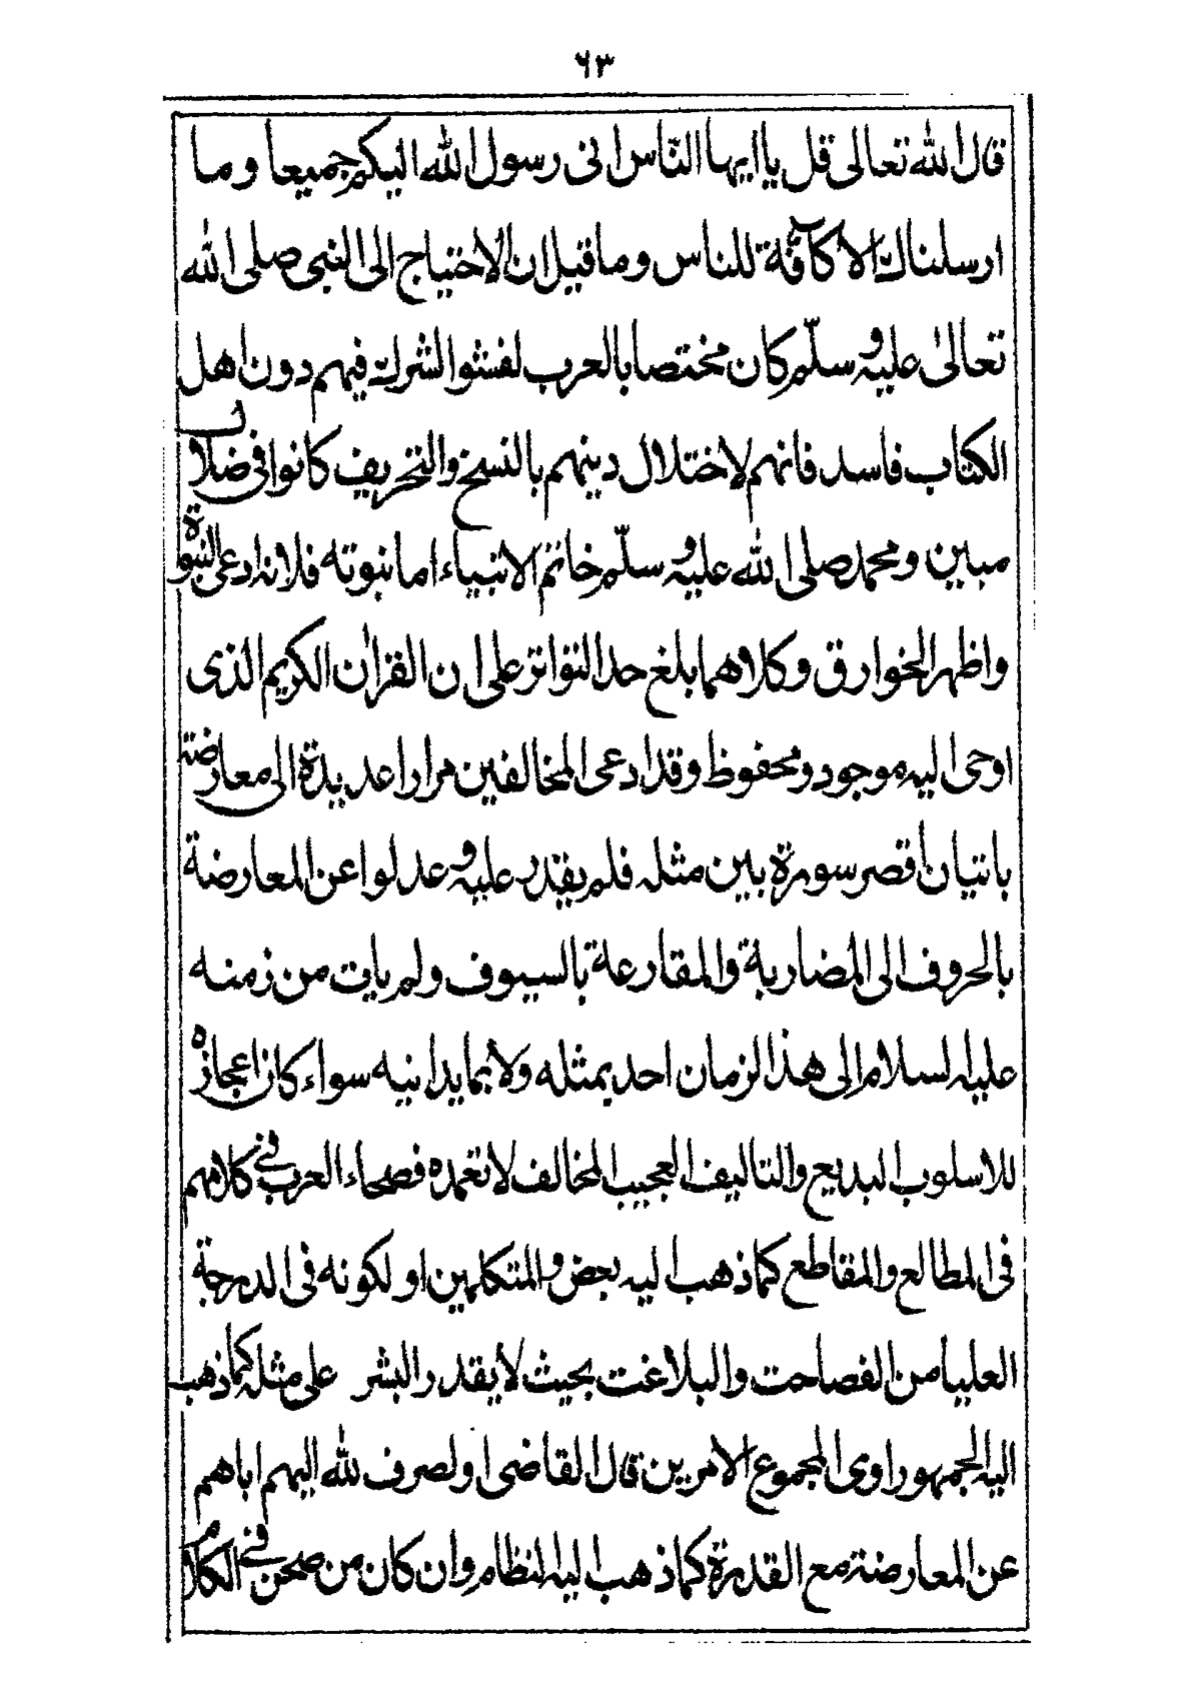 ٦٣
قال الله تعالى قل يا ايها الناس انى رسول الله اليكم جميعا وما
ارسلناك الا كآفّة للناس وما قيل ان الاحتياج الى النبى صلى الله
تعالىٰ عليه وسلّم كان مختصا بالعرب لفشوا الشرك فيهم دون اهل
الكتاب فاسد فانهم لاختلال دينهم بالنسخ والتحريف كانوا فى ضلال
مبين ومحمد صلى الله عليه وسلّم خاتم الانبياء اما نبوته فلانه ادعى النبوة
واظهر الخوارق وكلاهما بلغ حد التواتر على ان القرأن الكريم الذى
اوحى اليه موجود ومحفوظ وقد ادعى المخالفين مرارا عديدة الى معارضته
باتيان أقصر سورة بين مثله فلم يقدر عليه وعدلوا عن المعارضة
بالحروف الى المضاربة والمقارعة بالسيوف ولم يات من زمنه
عليه السلام الى هذا الزمان احد بمثله ولا بما يدانيه سواء كان اعجازه
للاسلوب البديع والتاليف العجيب المخالف لا تعمده فصحاء العرب فى كلامهم
فى المطالع والمقاطع كما ذهب اليه بعض والمتكلمين او لكونه فى الدرجة
العليا من الفصاحت والبلاغت بحيث لا يقدر البشر على مثله كما ذهب
اليه الجمهور اوى المجموع الامرين قال القاضى او لصرف لله اليهم اباهم
عن المعارضة مع القدرة كما ذهب اليه النظام وان كان من صحن فى الكلام